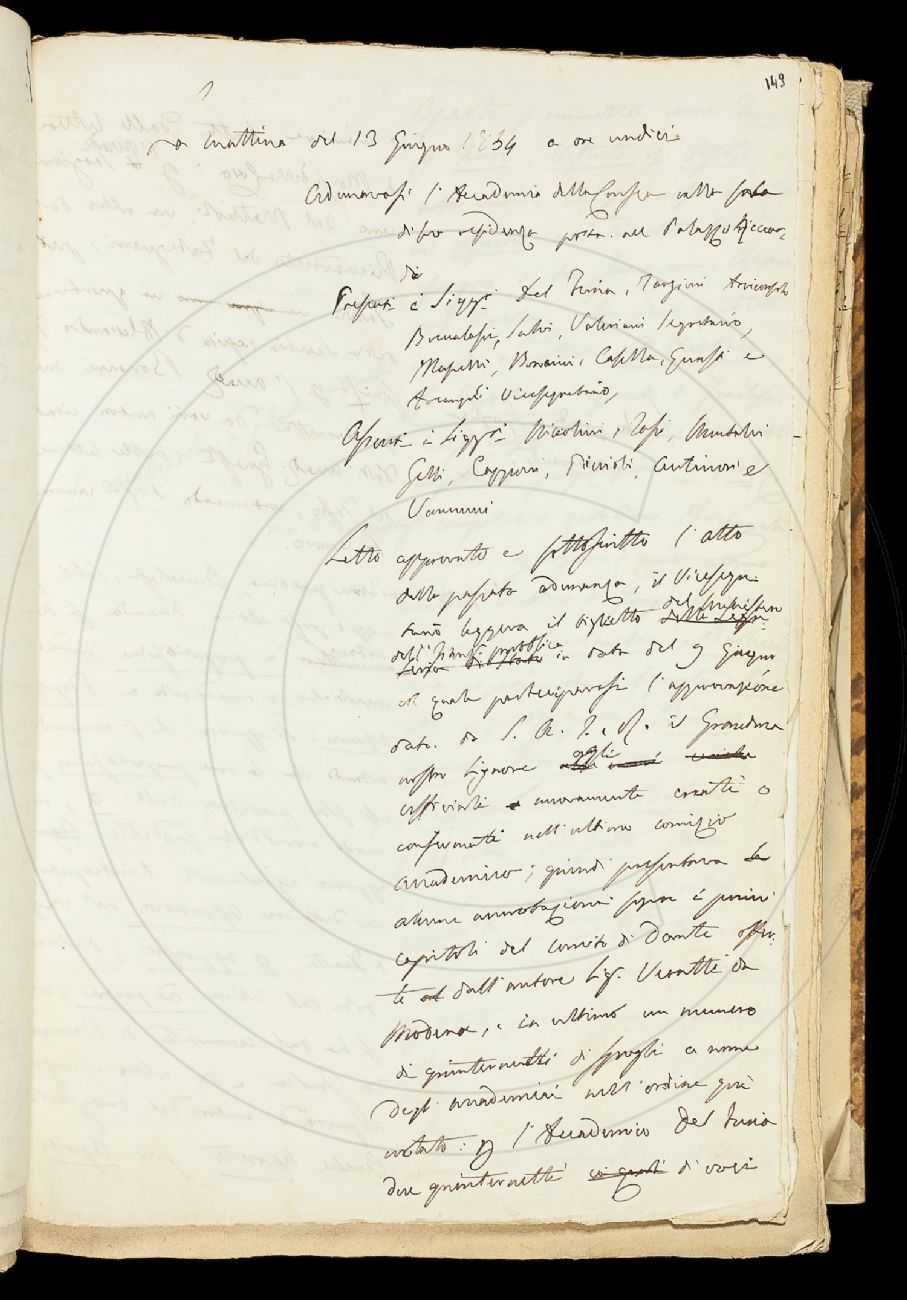 149
a mattina del 13 Giugno 1834 a ore undici
Adunavasi l'Accademia della Crusca nella sala
di sua residenza posta nel Palazzo Riccar-
di
Presenti i Sigg.ri Del Furia, Targioni Arciconsolo
Brucalassi, Salvi, Valeriani Segretario,
Masselli, Bonaini, Casella, Grassi e
Arcangeli Vicesegretario,
Assenti i Sigg.ri Niccolini, Rosi, Montalvi
Gelli, Capponi, Piccioli, Antinori e
Vannucci
Letto approvato e sottoscritto l'atto
della passata adunanza, il Vicesegre-
del Ministero
tario leggeva il biglietto della Segre-
dell'Istruz. pubblica
teria di Stato in data del 9 Giugno
col quale partecipavasi l'approvazione
data da S. A. I. e R. il Granduca
agli
nostro Signore
uffiziali e nuovamente creati o
confermati nell'ultimo comizio
accademico; quindi presentava le
alcune annotazioni sopra i primi
capitoli del Convito di Dante offer-
te dall'autore Sig. Veratti da
Modena, e in ultimo un numero
di quinternetti di spogli a nome
degli accademici nell'ordine qui
notato: p l'Accademico Del Furia
due quinternetti di voci